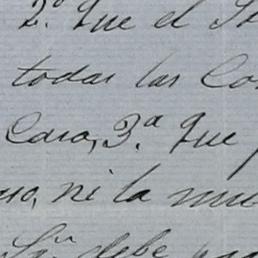 2.º Que el
todas las Co
Casa, 3.ª Que
ni la
debe